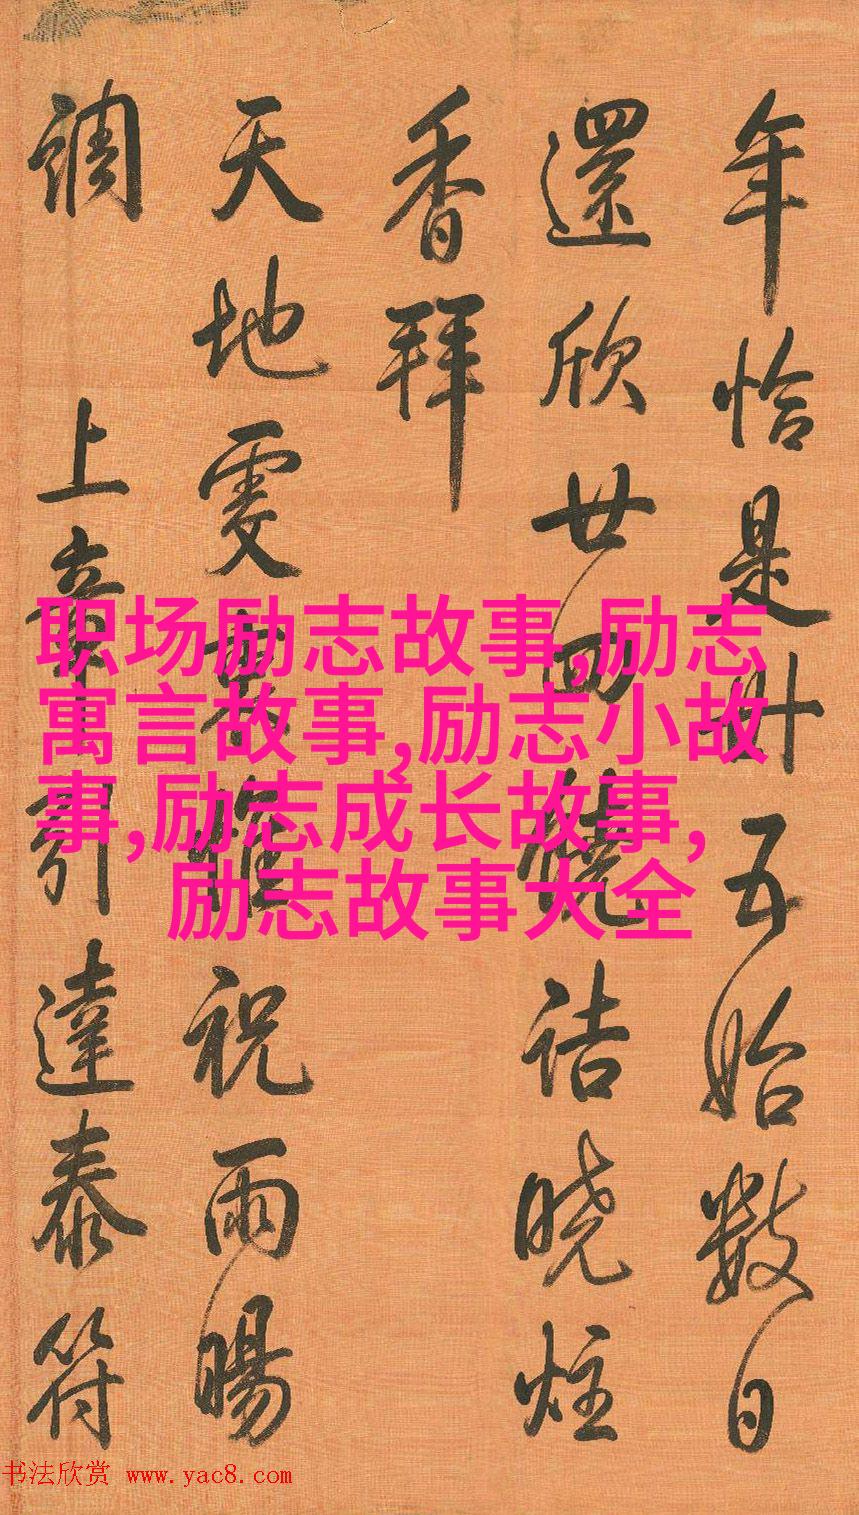 年恰是卅五始數日
還欣廿四詰曉炷
香拜
天地惟祝雨暘
調 上辛引達泰符
职场励志故事,励志
寓言故事,励志小故
事,励志成长故事,
励志故事大全
书法欣赏 www.yac8.com